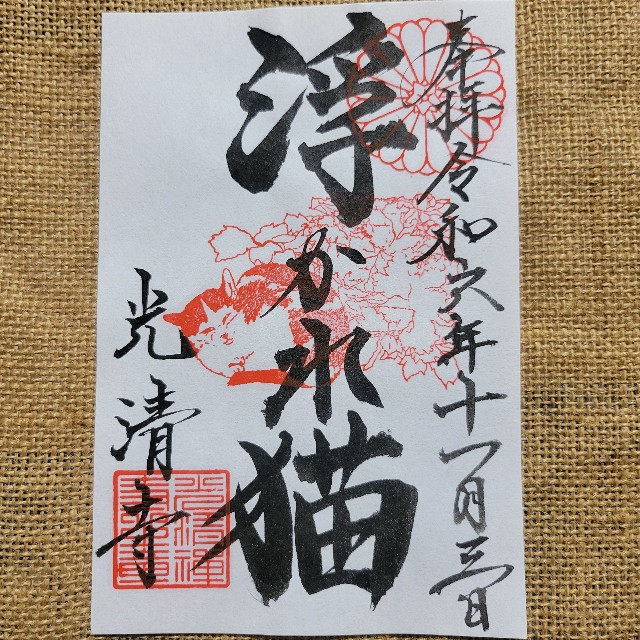 奉拝 令和六年十一月三日
浮かれ猫
光清寺